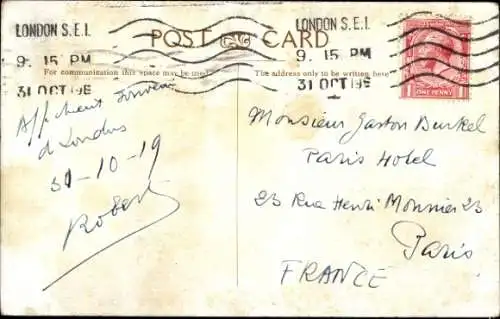 LONDON S.E.1.
9. 15 PM
31 OCT 19E
LONDON S.E.1.
9. 15 PM
31 OCT 19E
POST CARD
For communication this space may be used
The address only to be written here
ONE PENNY
d Londres
31-10-19
Robert
Monsieur Gaston
Paris Hotel
23 Rue Henri Monnier 23
Paris
FRANCE